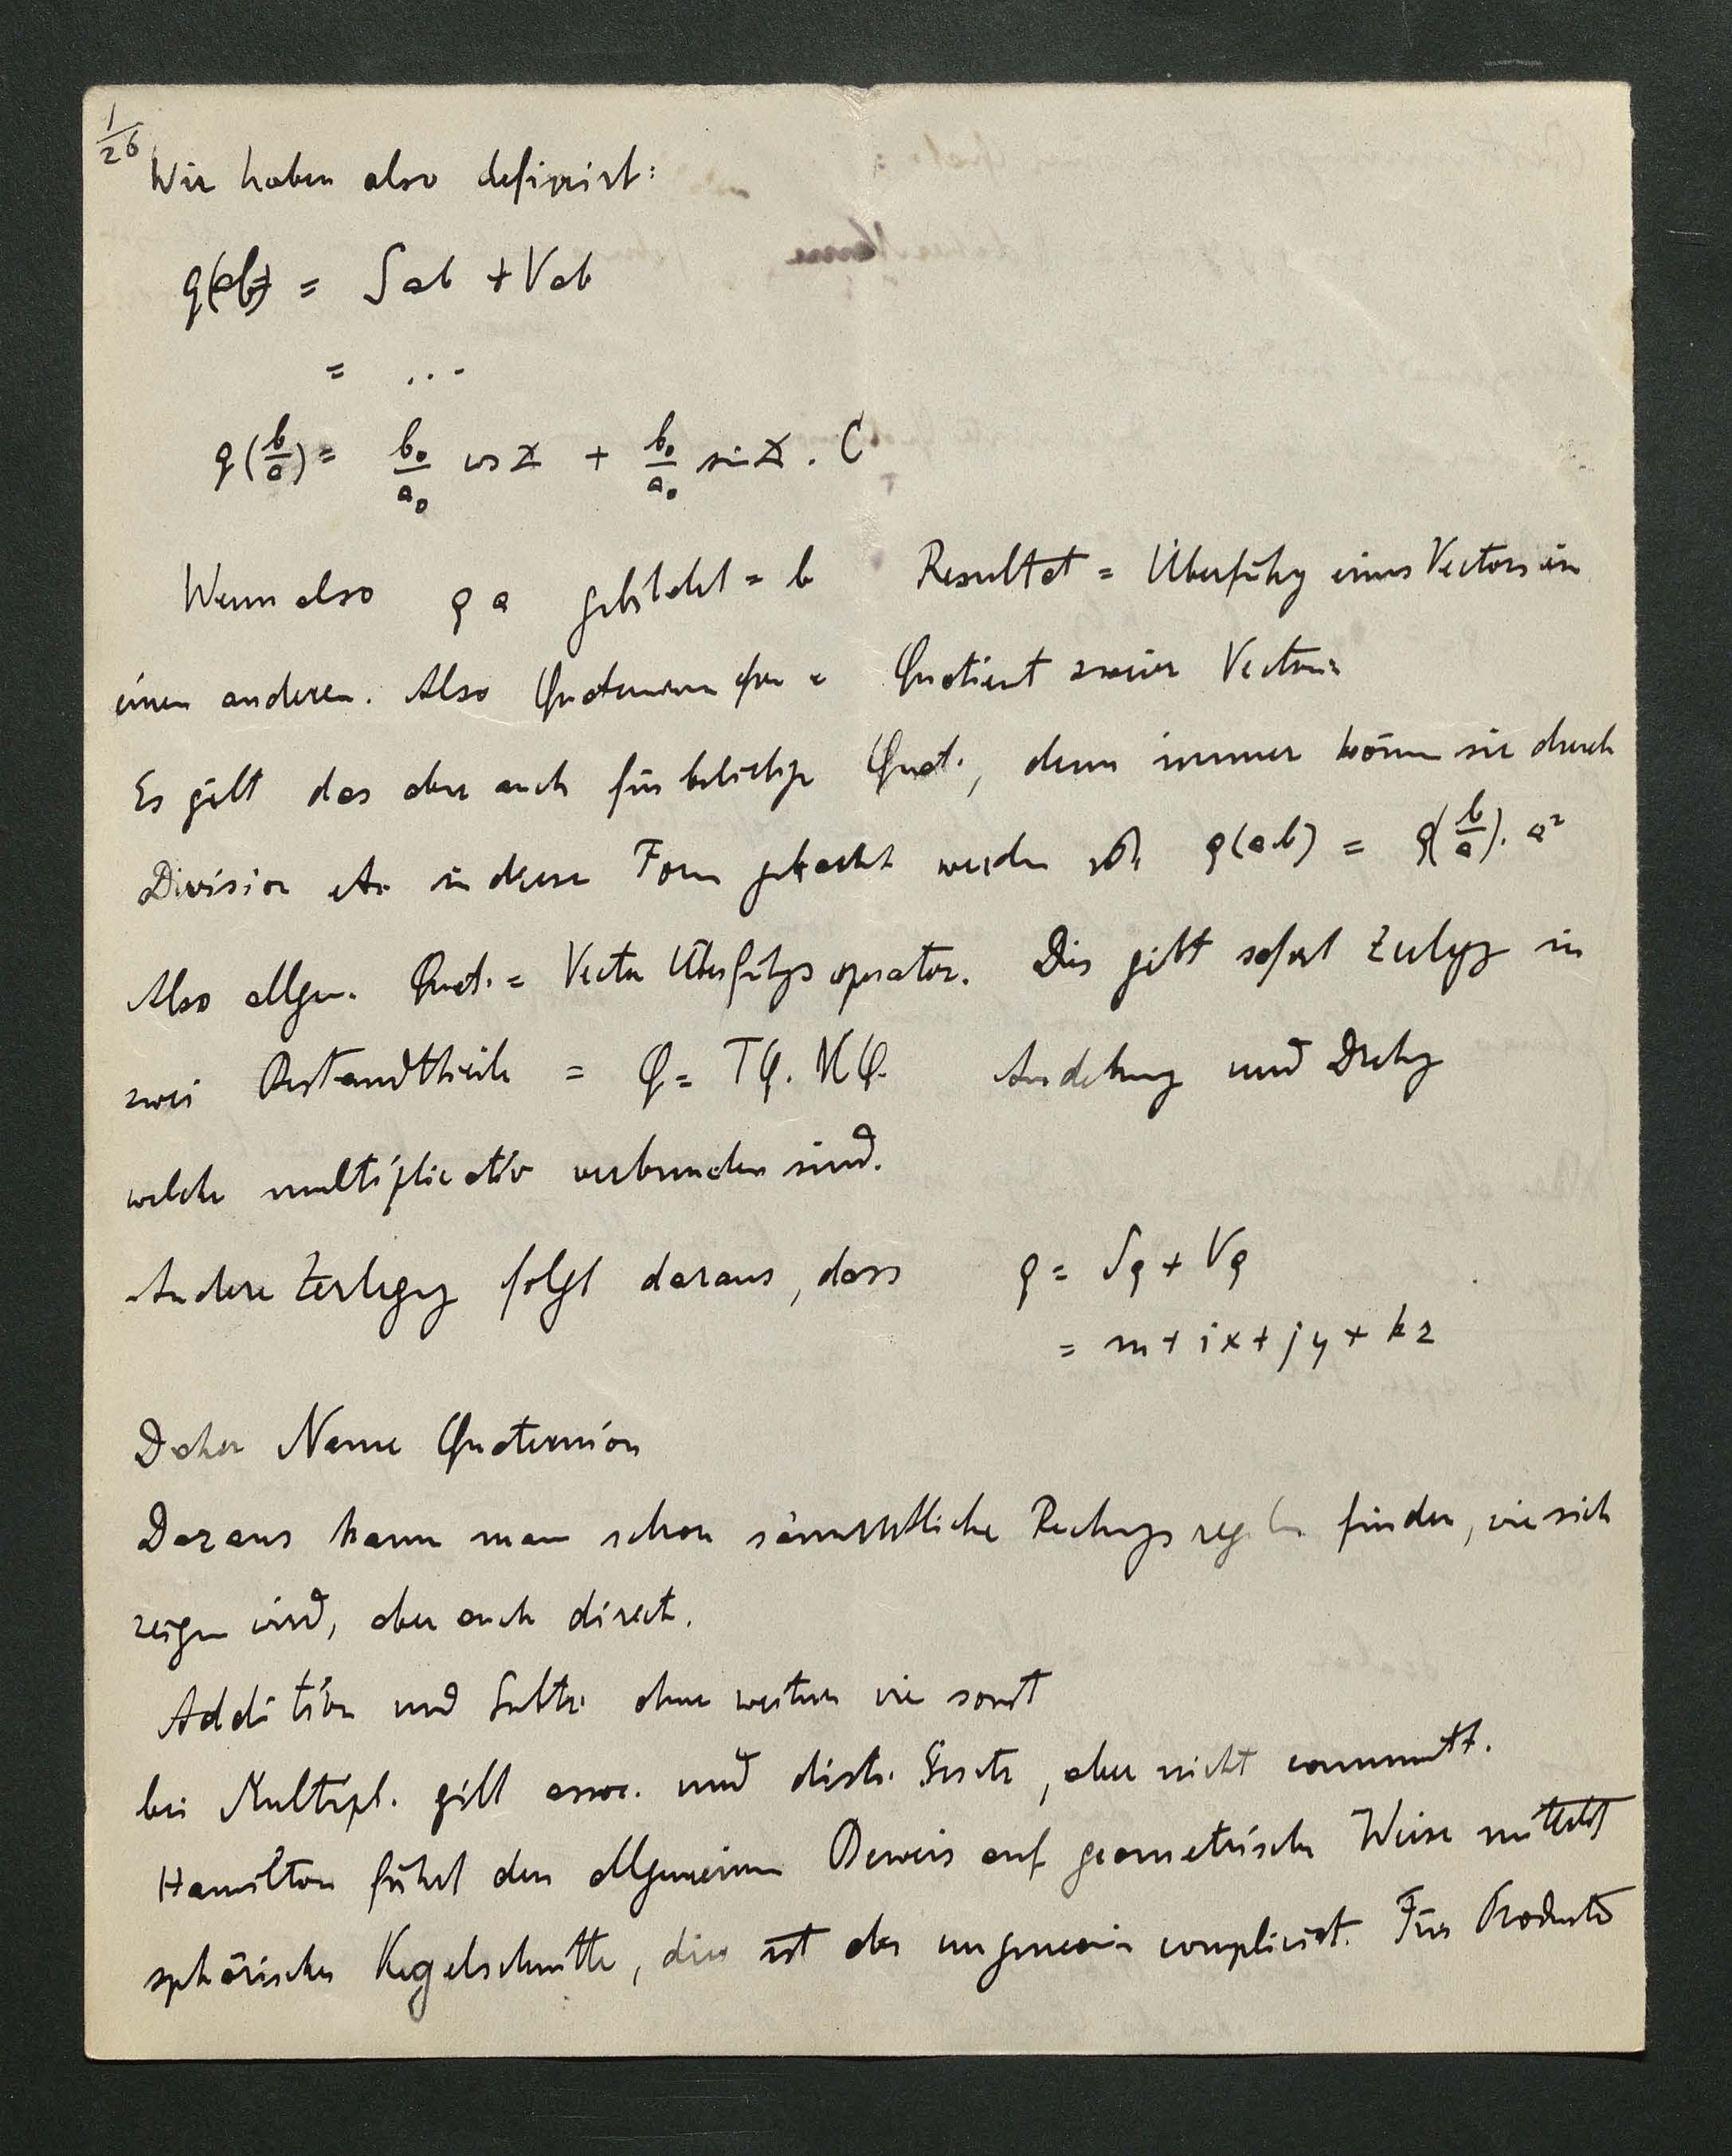 1/26
Wir haben also definirt:
q(ab) = Sab + Vab
= ...
q(b/a) = b₀/a₀ cos ∡ + b₀/a₀ sin ∡ . C
Wenn also q a gebildet = b Resultat = Überführg eines Vectors in
einen anderen. Also Quaternion = Quotient zweier Vectoren
Es gilt das aber auch für beliebige Quat., denn immer könn sie durch
Division in diese Form gebracht werden q(ab) = q(b/a). a²
Also allgem. Quat. = Vector Überführgs operator. Dies gibt sofort Zerlegg in
zwei Bestandtheile = Q = TQ. UQ. Ausdehnung und Drehg
welche multiplicativ verbunden sind.
Andere Zerlegg folgt daraus, dass q = Sq + Vq
= m + ix + jy + kz
Daher Name Quaternion
Daraus kann man schon sämmtliche Rechngs regeln finden, wie sich
zeigen wird, aber auch direct.
Addition und Subtr. ohne weiteres wie sonst
bei Multipl. gilt assoc. und distr. Gesetz, aber nicht commutt.
Hamilton führt den allgemeinen Beweis auf geometrische Weise mittelst
sphärischer Kegelschnitte, dies ist aber ungemein complicirt. Für Producte